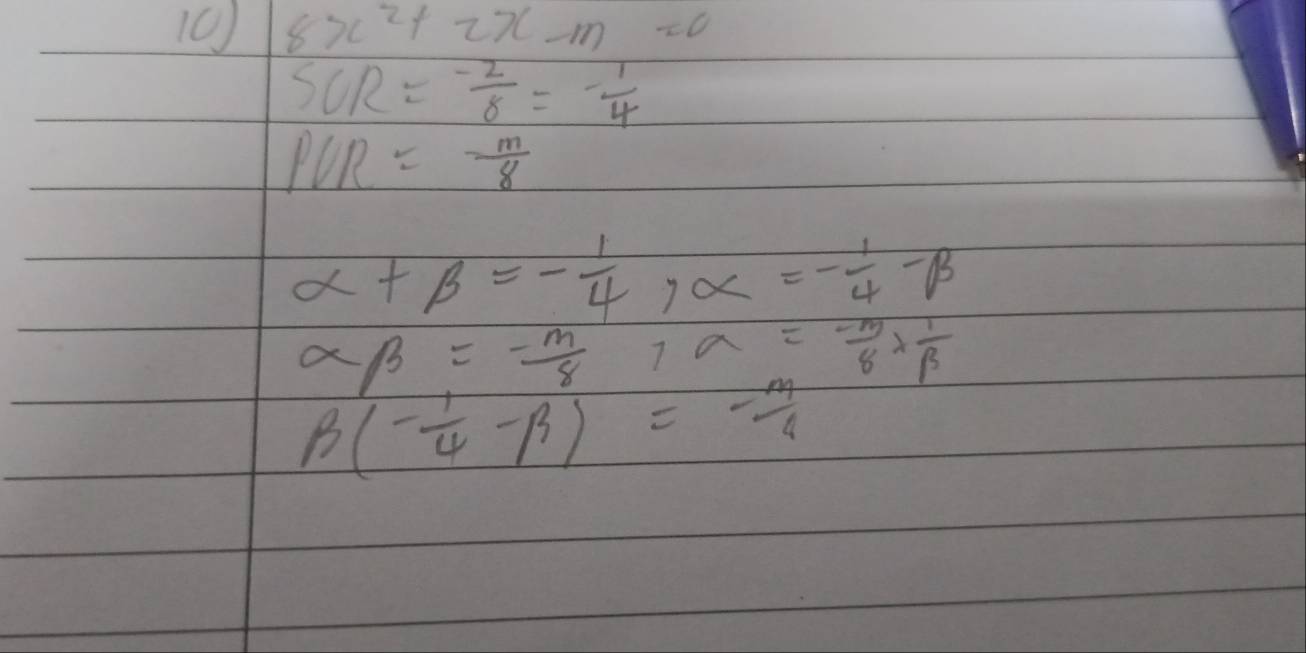 10) 8x²+ 2x -m =0
SOR = -2/8 = -1/4
POR = -m/8
α + β = -1/4 , α = -1/4 -β
αβ = -m/8 , α = -m/8 × 1/β
β(-1/4 -β) = -m/8